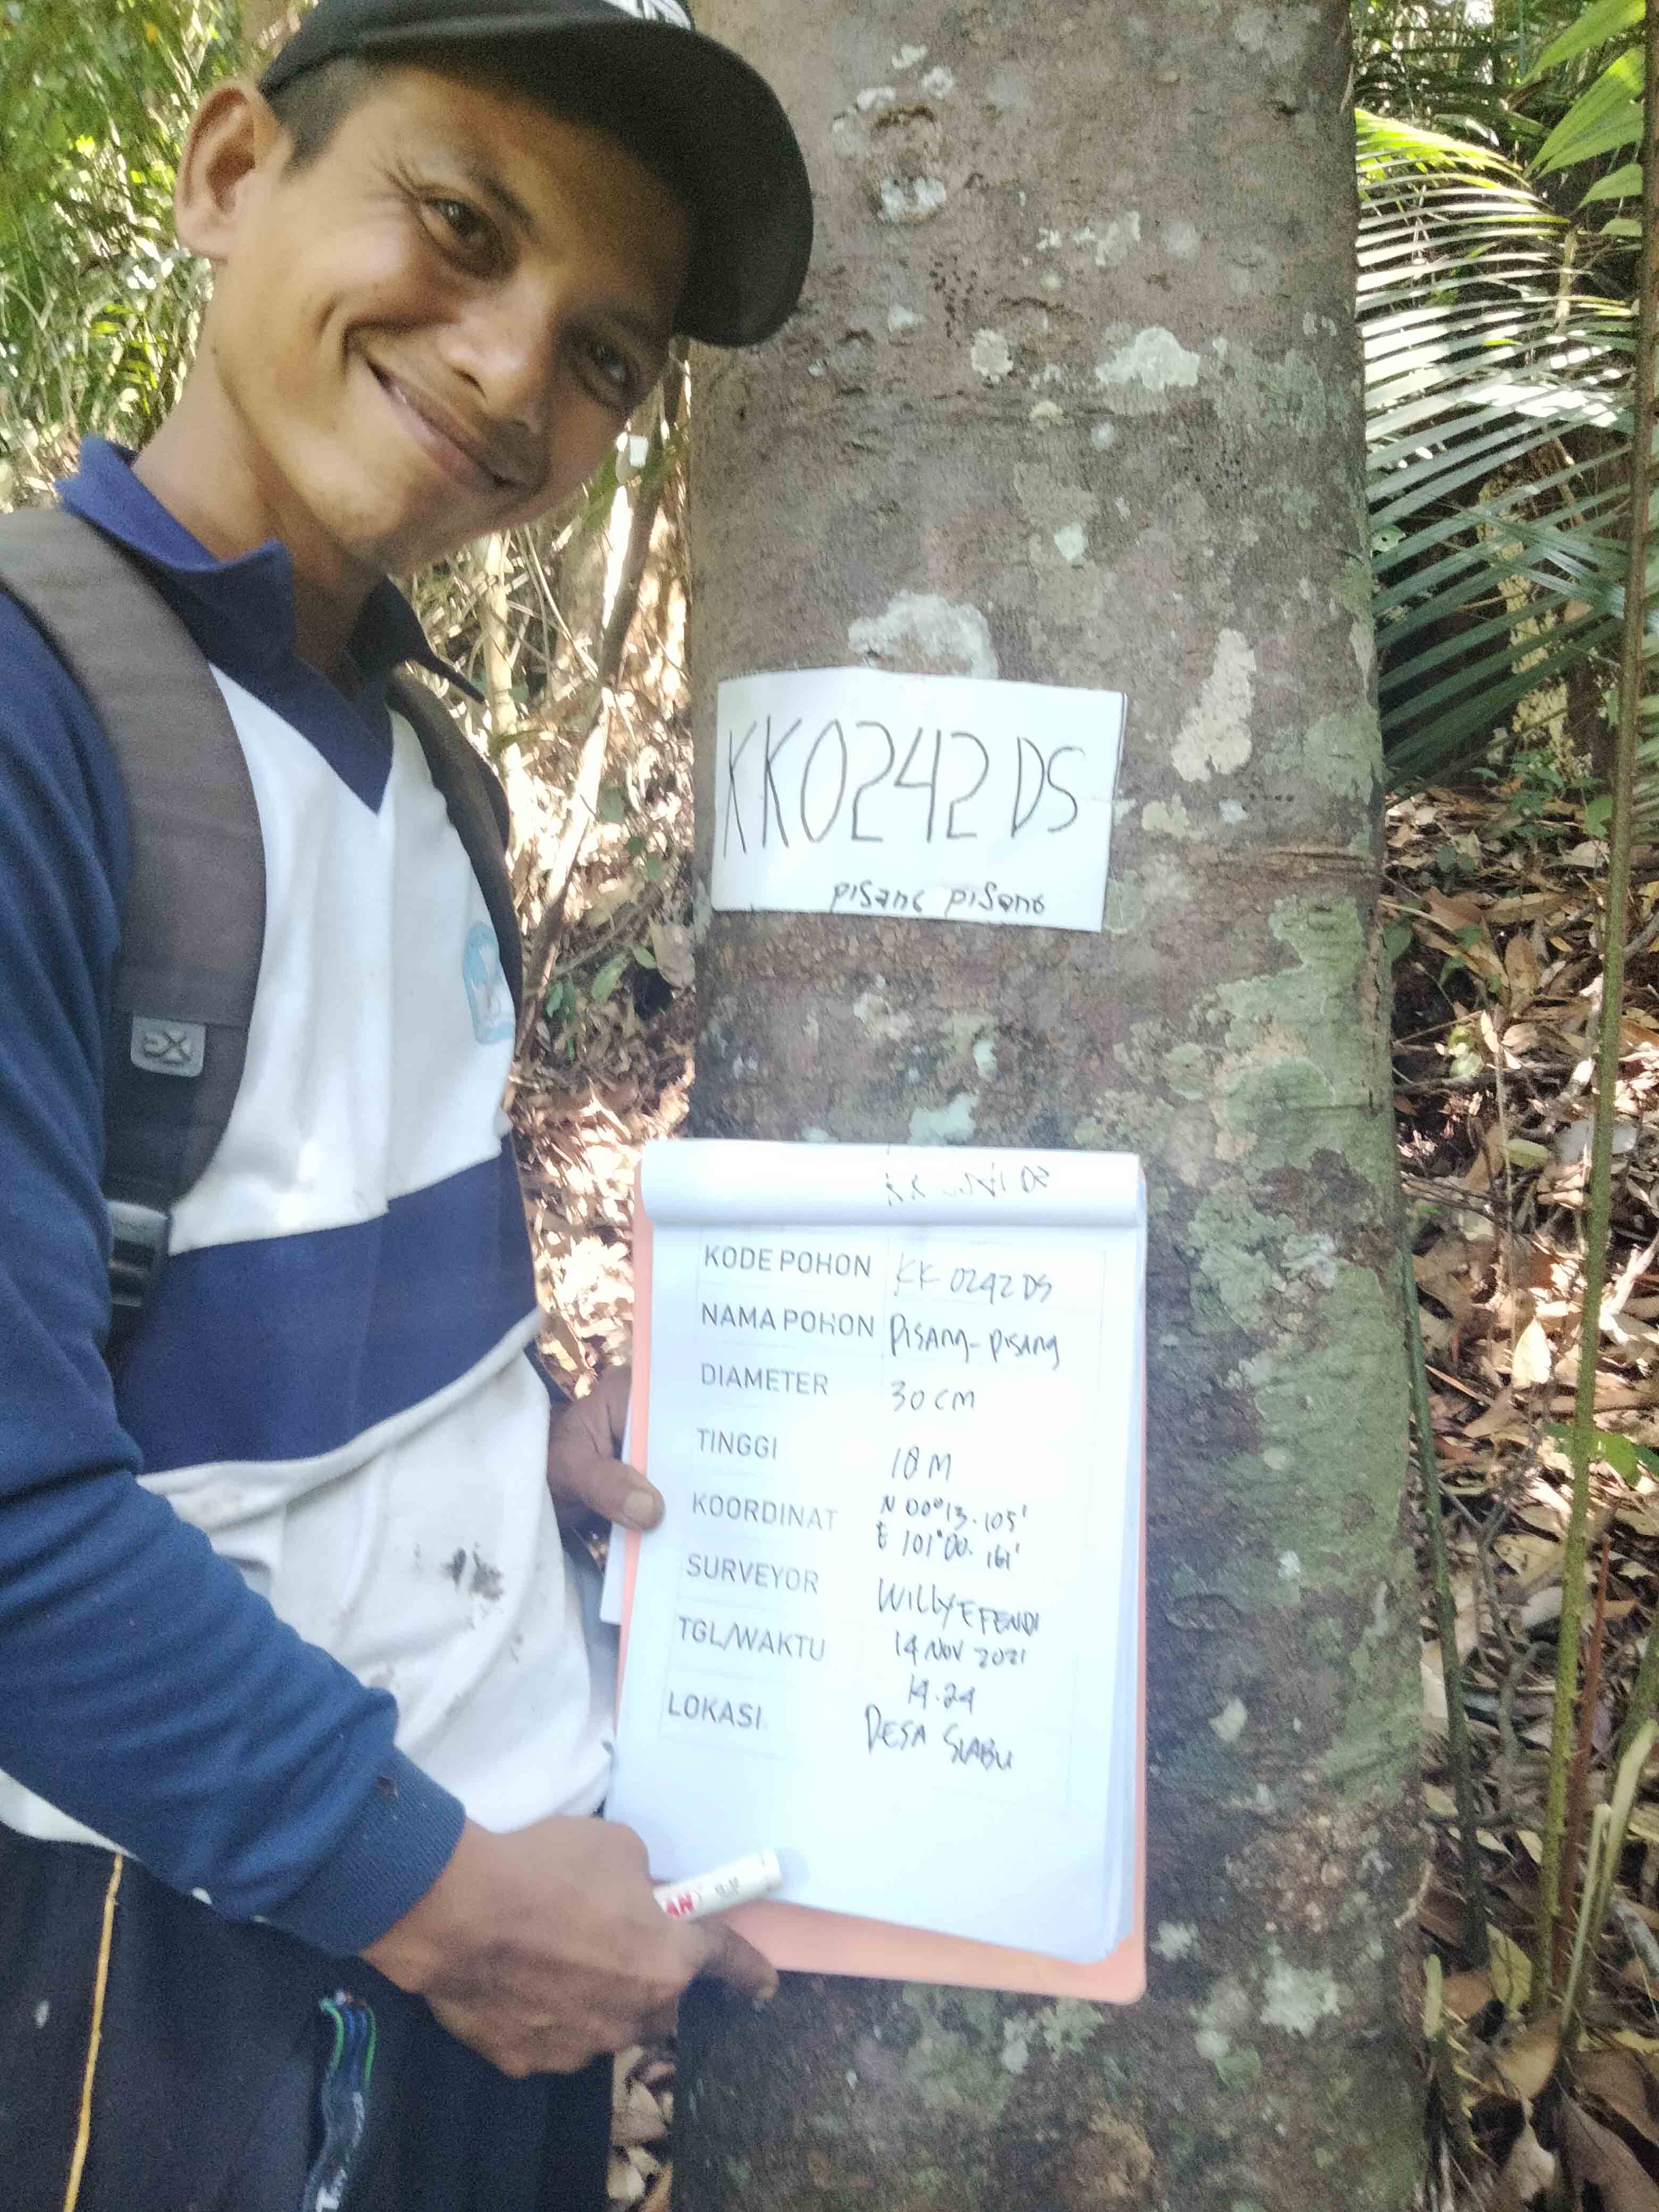 KK0242 DS
pisang pisang
KODE POHON KK 0242 DS
NAMA POHON PISANG-PISANG
DIAMETER 30 CM
TINGGI 18 M
KOORDINAT N 00°13.105'
E 101°00.161'
SURVEYOR WILLY EFENDI
TGL/WAKTU 14 NOV 2021
14.24
LOKASI DESA SIABU
EX